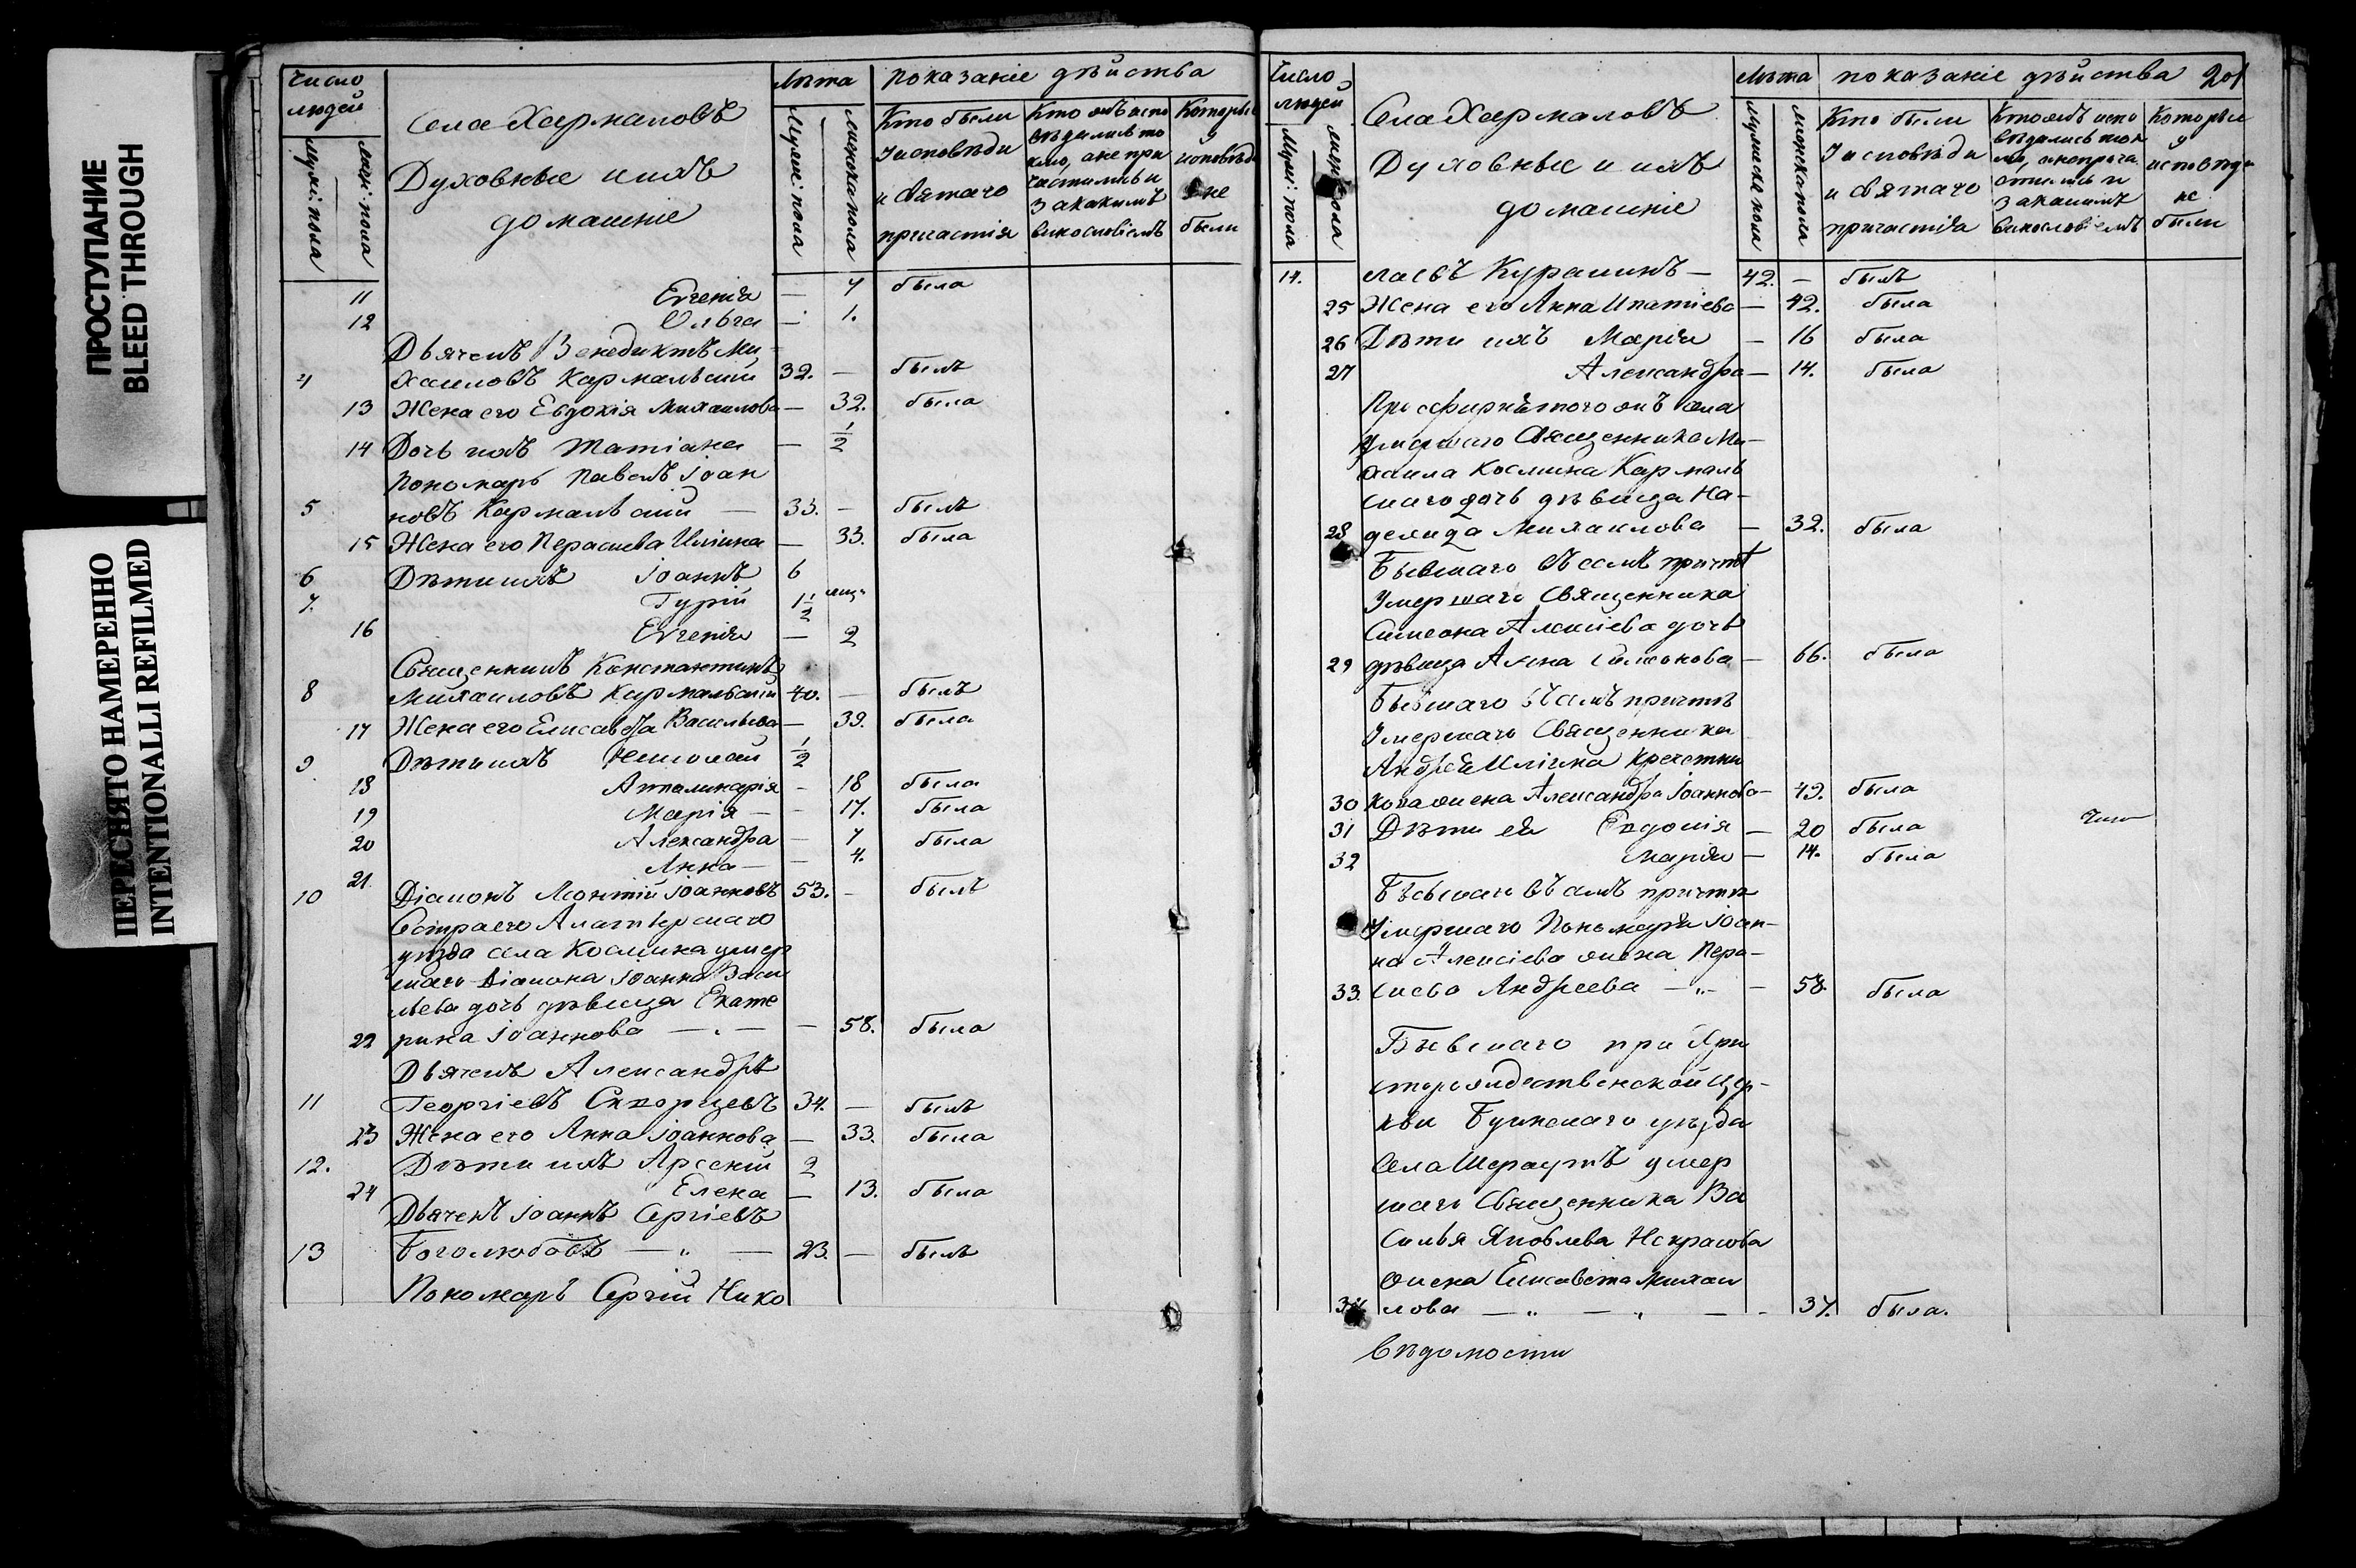 ПРОСТУПАНИЕ
BLEED THROUGH
ПЕРЕСНЯТО НАМЕРЕННО
INTENTIONALLI REFILMED
Число людей
Муж: пола
Жен: пола
Села Хармаловъ
Духовные и ихъ
домашніе
Лѣта
Мужс: пола
Женска пола
показаніе дѣйства
Кто были
У исповѣди
и святаго
причастія
Кто
Которые
у
исповѣди
не
были
11 Евгенія — 7 была
12 Ольга — 1.
Дьячекъ Венедиктъ Ми
4 хаиловъ Кармальскій 32. — былъ
13 Жена его Евдокія Михаилова — 32. была
14 Дочь ихъ Татіана — 1/2
Пономарь Павелъ Іоан
5 новъ Кармальскій — 33. — былъ
15 Жена его Параскева Иліина — 33. была
6 Дѣти ихъ Іоаннъ 6
7. Гурій 1 1/2
16 Евгенія — 2
Священникъ Константинъ
8 Михаиловъ Кармальскій 40. — былъ
17 Жена его Елисавета Васильева — 39. была
9 Дѣти ихъ Николай 1/2
18 Апполинарія — 18 была
19 Марія — — 17. была
20 Александра — 7 была
21. Анна — — 4.
10 Діаконъ Леонтій Іоанновъ 53. — былъ
Сестра его Алатырскаго
уѣзда села Кослика умер
шаго Діакона Іоанна Васи
льева дочь дѣвица Екате
22 рина Іоаннова — „ — — 58. была
Дьячекъ Александръ
11 Георгіевъ Скворцевъ 34. — былъ
23 Жена его Анна Іоаннова — 33. была
12. Дѣти ихъ Арсеній 2
24 Елена — 13. была
Дьячекъ Іоаннъ Сергіевъ
13 Боголюбовъ — „ — 23. — былъ
Пономарь Сергій Нико
Число
людей
Мужс: пола
Села Хармаловъ
Духовные и ихъ
домашніе
Лѣта
Мужеска пола
Женска пола
показаніе дѣйства 201
Кто были
У исповѣди
и святаго
причастія
Которые
у
исповѣди
не
были
14. лаевъ Курашинъ — 42. — былъ
25 Жена его Анна Ипатіева — 42. была
26 Дѣти ихъ Марія — 16 была
27 Александра — 14. была
умершаго Священника Ми-
хаила Космина Кармаль
скаго дочь дѣвица На-
28 дежда Михаилова — 32. была
Бывшаго въ семъ причтѣ
Умершаго Священника
Симеона Алексіева дочь
29 дѣвица Анна Симеонова — 66. была
Бывшаго въ семъ причтѣ
Умершаго Священника
Андрея Иліина Кречетни
30 кова жена Александра Іоаннова — 49. была
31 Дѣти ея Евдокія — 20 была
32 Марія — 14. была
Бывшаго въ семъ причтѣ
Умершаго Пономаря Іоан-
на Алексіева жена Пара-
33. скева Андреева — „ — — 58. была
Бывшаго при Хри
сторождественской Цер-
кви Буинскаго уѣзда
Села Шераутъ умер
шаго Священника Ва
силья Яковлева Некрасова
жена Елисавета Михаи
34 лова — „ — „ — — 37. была.
Вѣдомости